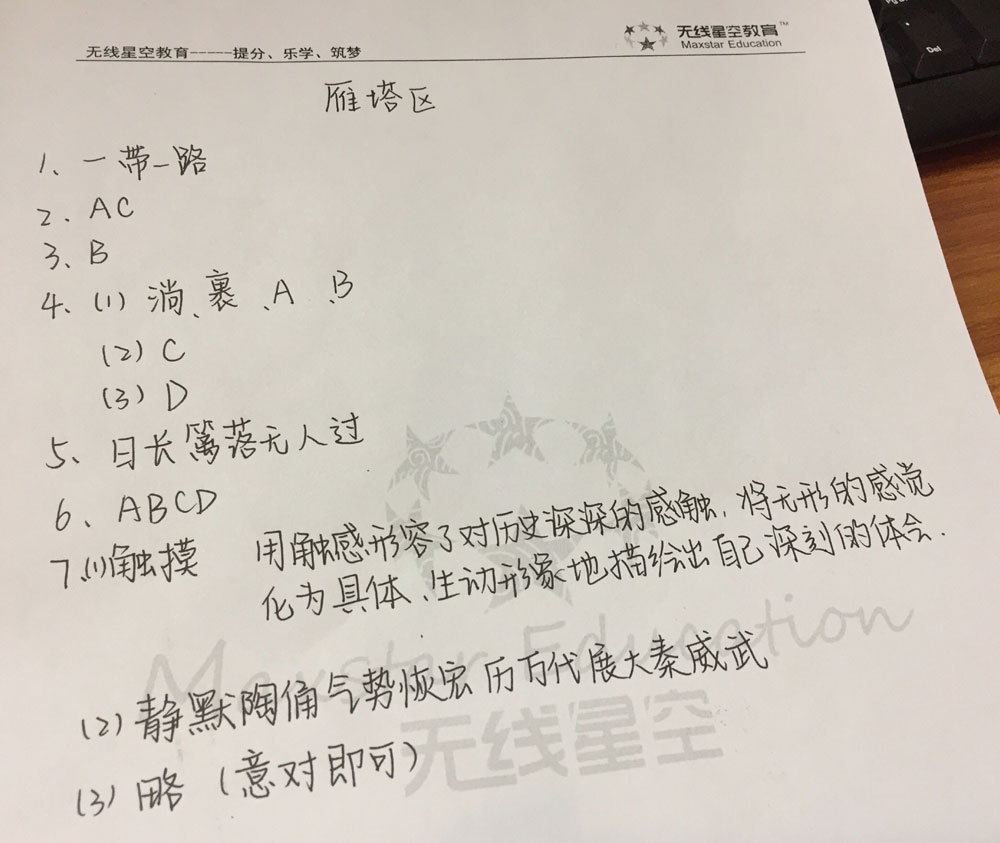 无线星空教育-----提分、乐学、筑梦
无线星空教育™
Maxstar Education
Del
雁塔区
1、一带一路
2、AC
3、B
4、(1) 淌、裹、A、B
(2) C
(3) D
5、日长篱落无人过
6、ABCD
7、(1)触摸 用触感形容了对历史深深的感触,将无形的感觉
化为具体、生动形象地描绘出自己深刻的体会.
(2) 静默陶俑气势恢宏 历万代展大秦威武
(3) 略(意对即可)
Maxstar Education
无线星空